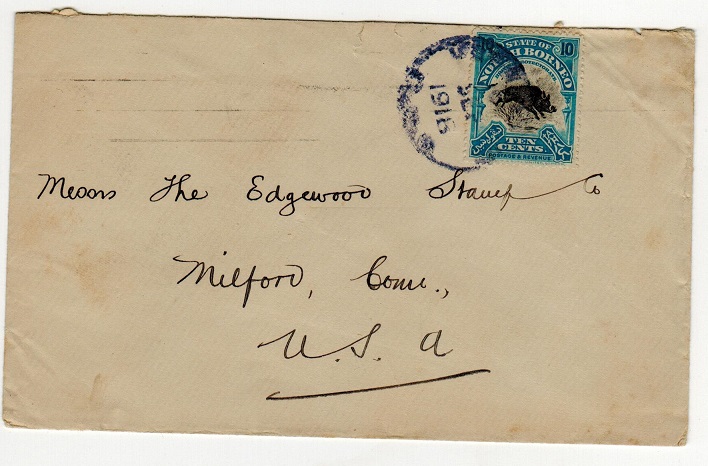 10 STATE OF 10
NORTH BORNEO
TEN
CENTS
POSTAGE & REVENUE
1916
Messrs The Edgewood Stamp Co
Milford, Conn.,
U.S.A